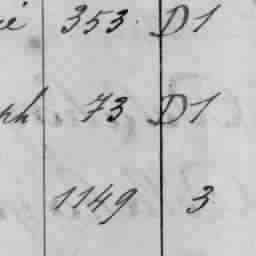 353 D1
ph 73 D1
1149 3